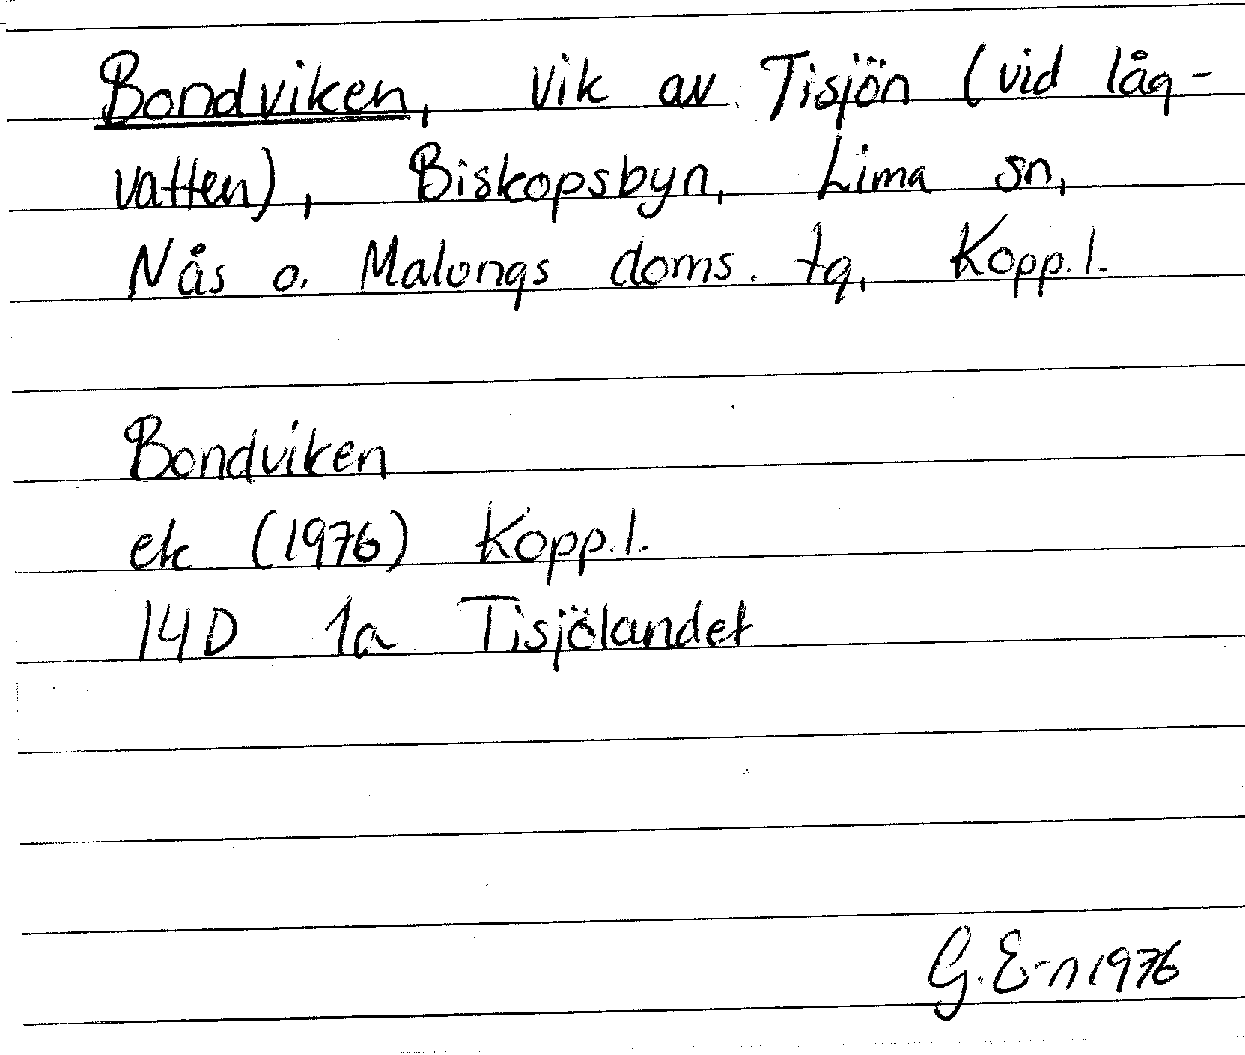 Bondviken, vik av Tisjön (vid låg-
vatten), Biskopsbyn, Lima sn,
Nås o. Malungs doms. tg, Kopp.l.
Bondviken
ek (1976) Kopp.l.
14D 1a Tisjölandet
G. E-n 1976